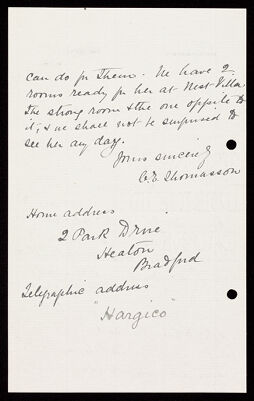 can do for them. We have 2
rooms ready for her at West Villa
the strong room & the one opposite to
it, & we shall not be surprised to
see her any day.
Yours sincerely
C. E. Thomasson
Home address
2 Park Drive
Heaton
Bradford
Telegraphic address
"Hargico"